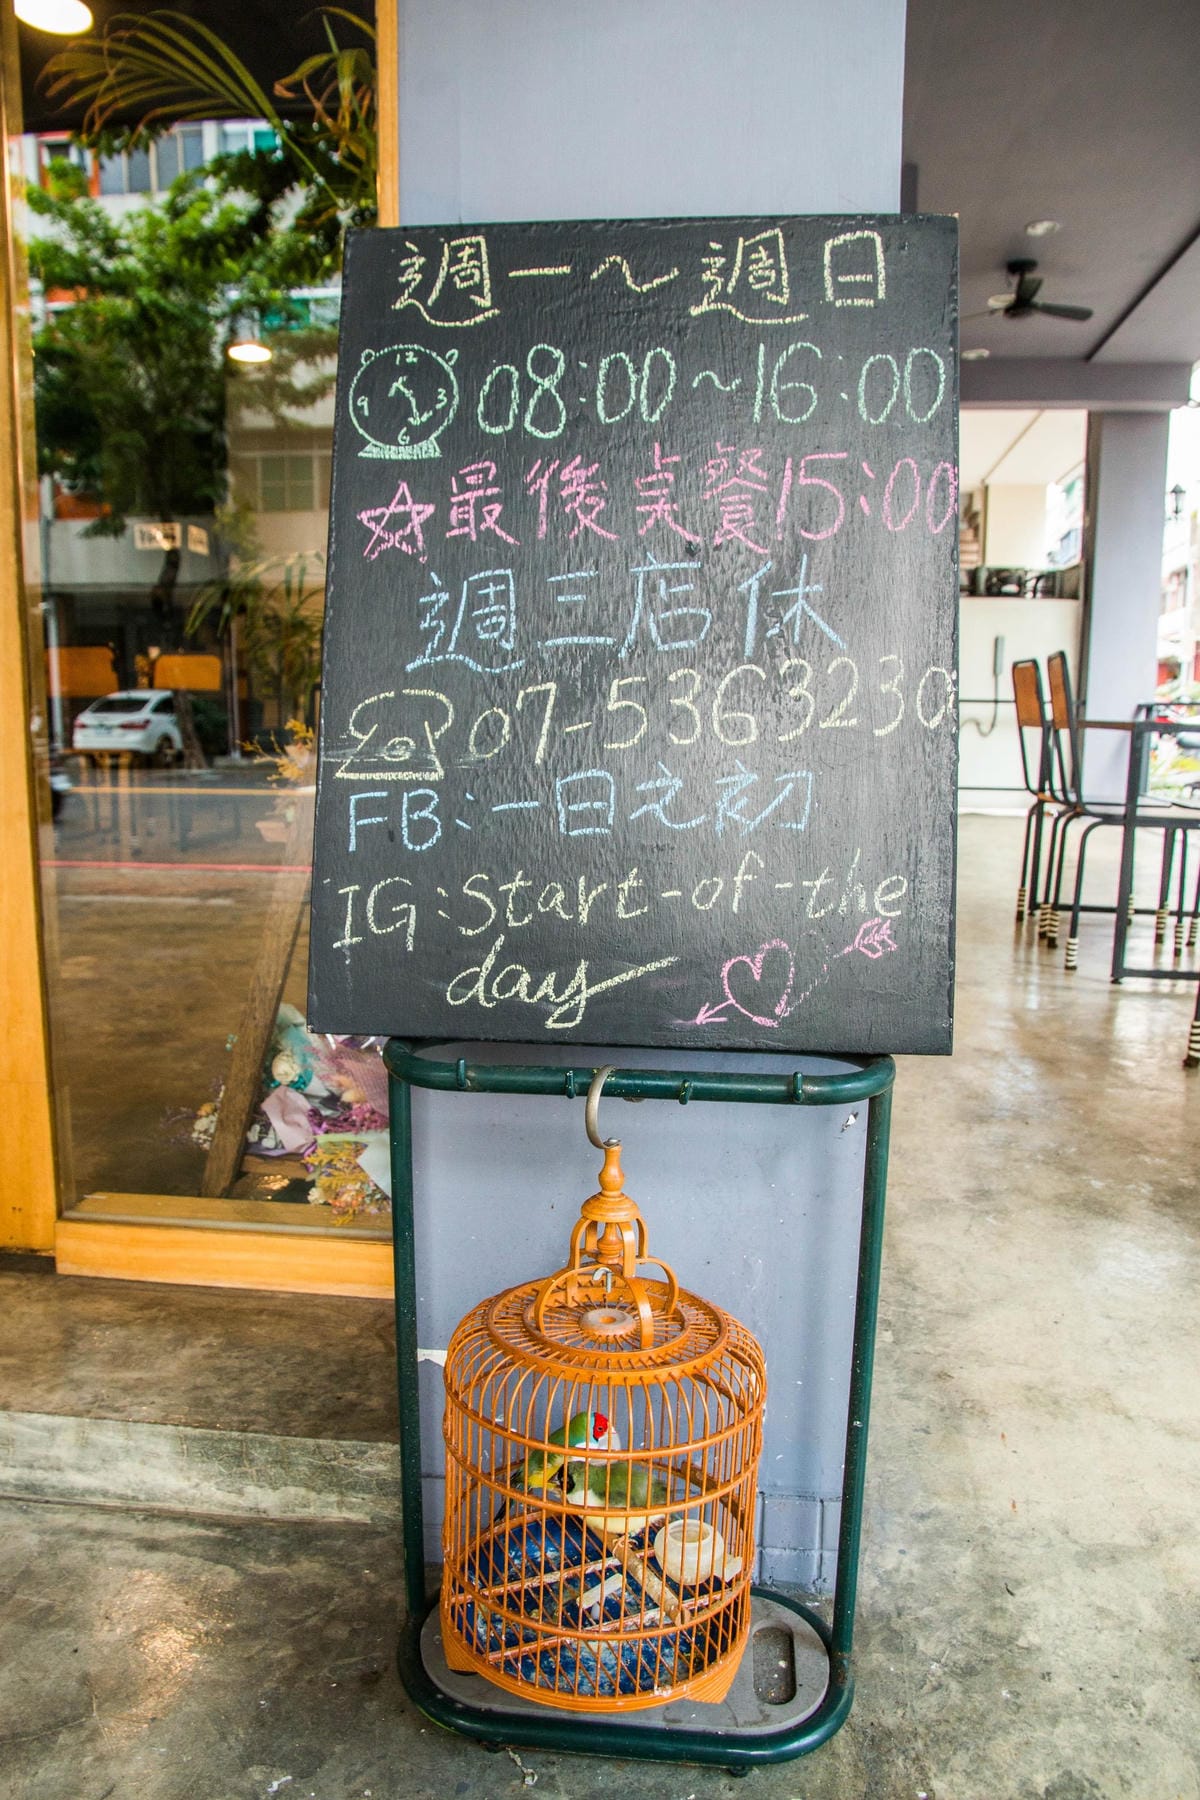 週一～週日
12
9 3
6
08:00~16:00
最後奌餐15:00
週三店休
07-5363230
FB:一日之初
IG:Start-of-the
day